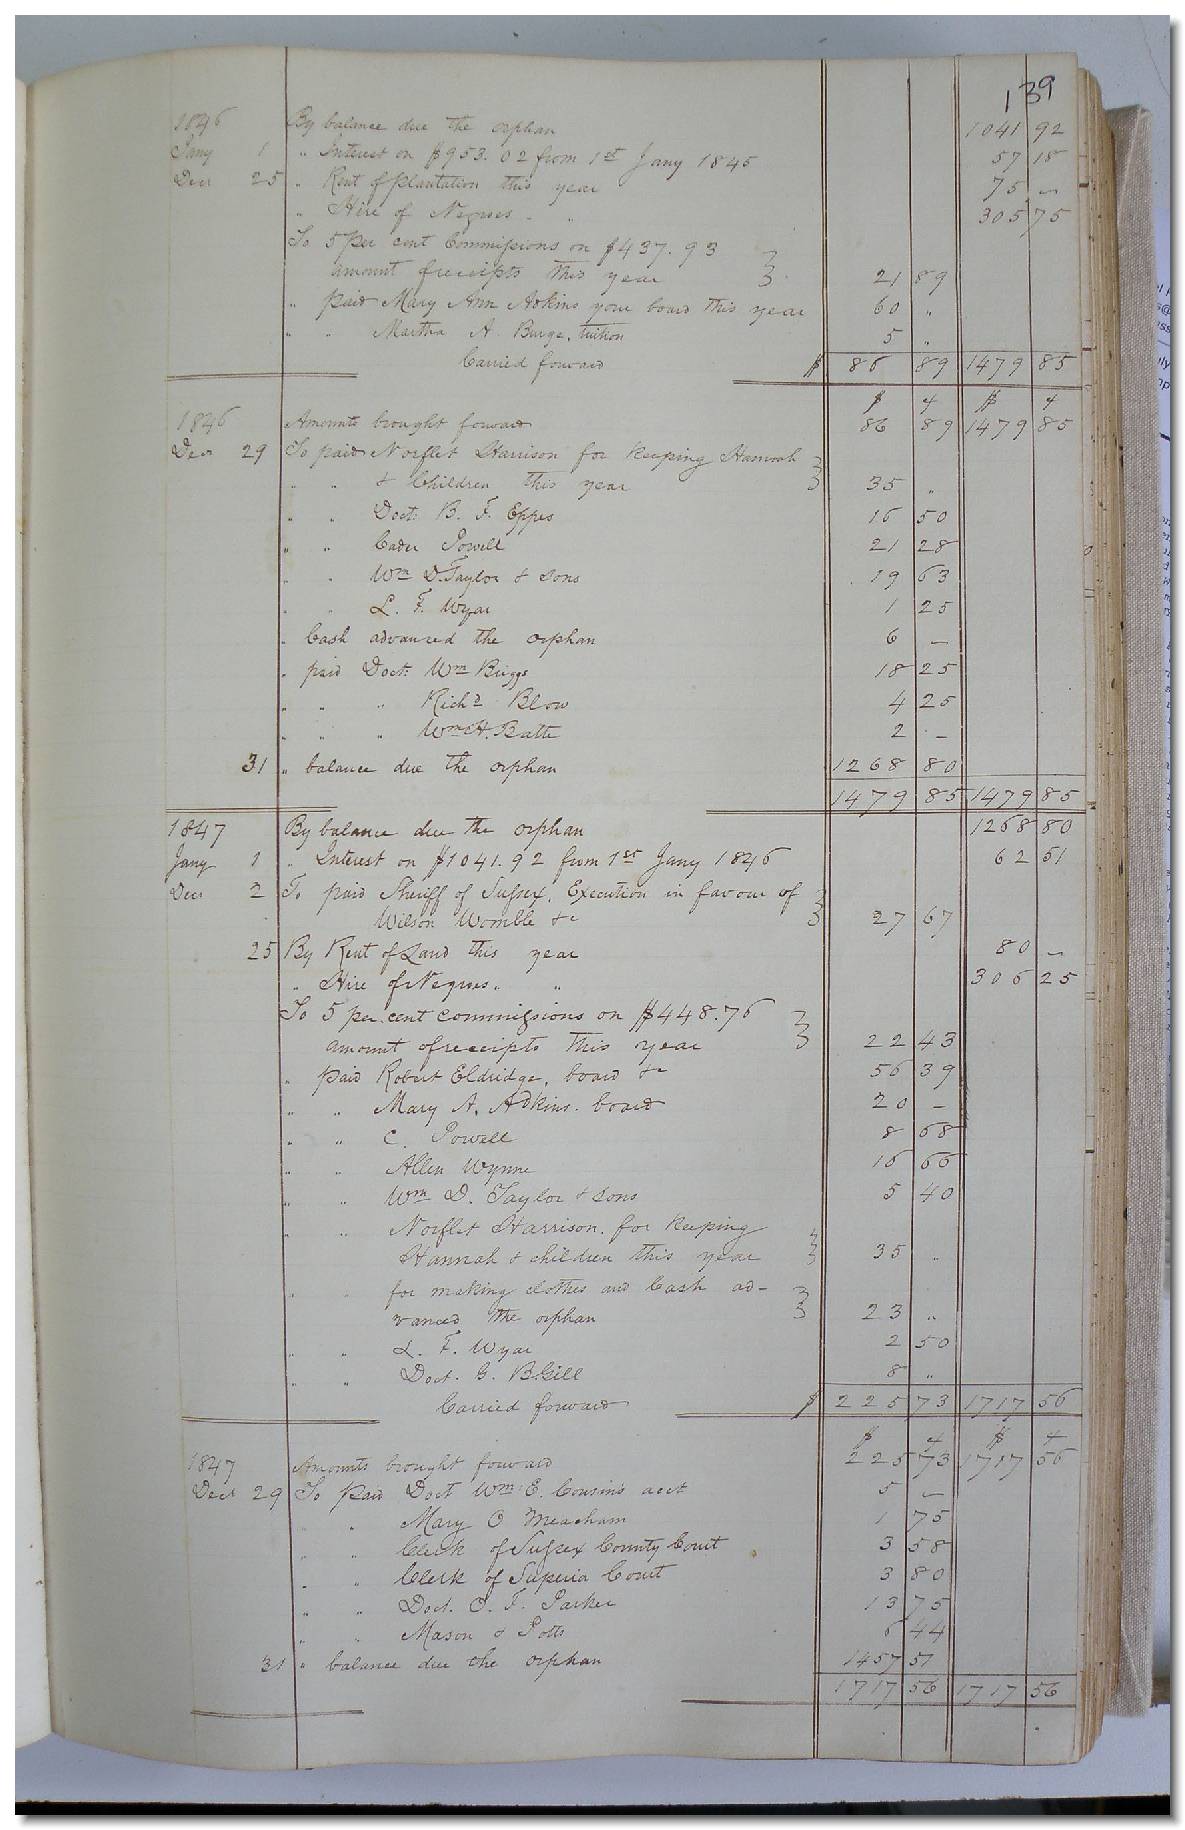 139
1846 By balance due the orphan 1041 92
Jany 1 " Interest on $953.02 from 1st Jany 1845 57 18
Decr 25 " Rent of Plantation this year 75 —
" Hire of Negroes " " 305 75
To 5 per cent Commissions on $437.93
amount of receipts this year } 21 89
" paid Mary Ann Adkins your board this year 60 "
" " Martha A. Burge, tuition 5 "
Carried forward $ 86 89 1479 85
$ ¢ $ ¢
1846 Amounts brought forward 86 89 1479 85
Decr 29 To paid Norflet Harrison for keeping Hannah
" " & Children this year } 35 "
" " Doct. B. F. Eppes 16 50
" " Cader Powell 21 28
" " Wm D. Taylor & Sons 19 63
" " L. F. Wyar 1 25
" Cash advanced the orphan 6 —
" paid Doct. Wm Briggs 18 25
" " " Richd Blow 4 25
" " " Wm H. Batte 2 —
31 " balance due the orphan 1268 80
1479 85 1479 85
1847 By balance due the orphan 1268 80
Jany 1 " Interest on $1041.92 from 1st Jany 1846 62 51
Decr 2 To paid Sheriff of Sussex, Execution in favour of
Wilson Womble &c } 27 67
25 By Rent of Land this year 80 —
" Hire of Negroes " " 306 25
To 5 per cent commissions on $448.76
amount of receipts this year } 22 43
" paid Robert Eldridge, board &c 56 39
" " Mary A. Adkins. board 20 —
" " C. Powell 8 68
" " Allen Wynne 16 66
" " Wm D. Taylor & Sons 5 40
" " Norflet Harrison, for keeping
Hannah & children this year } 35 "
" " for making clothes and Cash ad-
vanced the orphan } 23 "
" " L. F. Wyar 2 50
" " Doct. G. B. Gill 8 "
Carried forward $ 225 73 1717 56
$ ¢ $ ¢
1847 Amounts brought forward 225 73 1717 56
Decr 29 To paid Doct Wm E. Cousins acct 5 —
" " Mary O Meacham 1 75
" " Clerk of Sussex County Court 3 58
" " Clerk of Superior Court 3 80
" " Doct. O. F. Parker 13 75
" " Mason & Potts 6 44
31 " balance due the orphan 1457 51
1717 56 1717 56